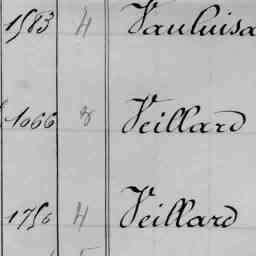 1583 4 Vauluisa
1066 8 Veillard
1756 4 Veillard